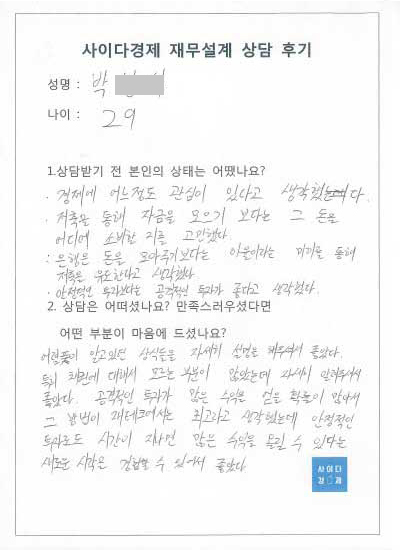 사이다경제 재무설계 상담 후기
성명 : 박
나이 : 29
1.상담받기 전 본인의 상태는 어땠나요?
· 경제에 어느정도 관심이 있다고 생각했다.
· 저축을 통해 자금을 모으기 보다는 그 돈을
어디에 소비할 지를 고민했다
· 은행은 돈을 모아주기보다는 이윤이라는 미끼를 통해
저축을 유도한다고 생각했다
· 안정적인 투자보다는 공격적인 투자가 좋다고 생각했다.
2. 상담은 어떠셨나요? 만족스러우셨다면
어떤 부분이 마음에 드셨나요?
어렴풋이 알고있던 상식들을 자세히 설명을 해주셔서 좋았다.
특히 대해서 모르는 부분이 많았는데 자세히 알려주셔서
좋았다. 공격적인 투자가 많은 수익을 얻을 확률이 많아서
그 방법이 재테크에서는 최고라고 생각했는데 안정적인
투자로도 시간이 지나면 많은 수익을 올릴 수 있다는
새로운 시각을 경험할 수 있어서 좋았다
사이다
경제